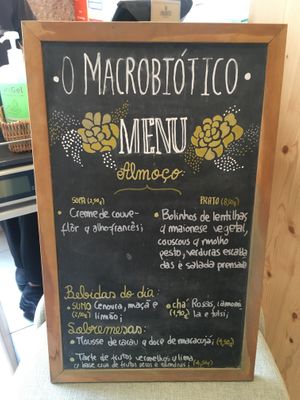 O MACROBIÓTICO
MENU
Almoço
SOPA (2,50€)
• Creme de couve-
flor q alho-francês;
PRATO (8,50€)
• Bolinhos de lentilhas
q maionese vegetal,
couscous q molho
pesto, verduras escalda
das e salada prensada
Bebidas do dia:
• SUMO Cenoura, maçã e
limão;
• chá: Rosas,
la e tulsi;
Sobremesas:
• Mousse de cacau q doce de maracujá;
• Tarte de frutos vermelhos q lima,
q base crua de frutos secos e